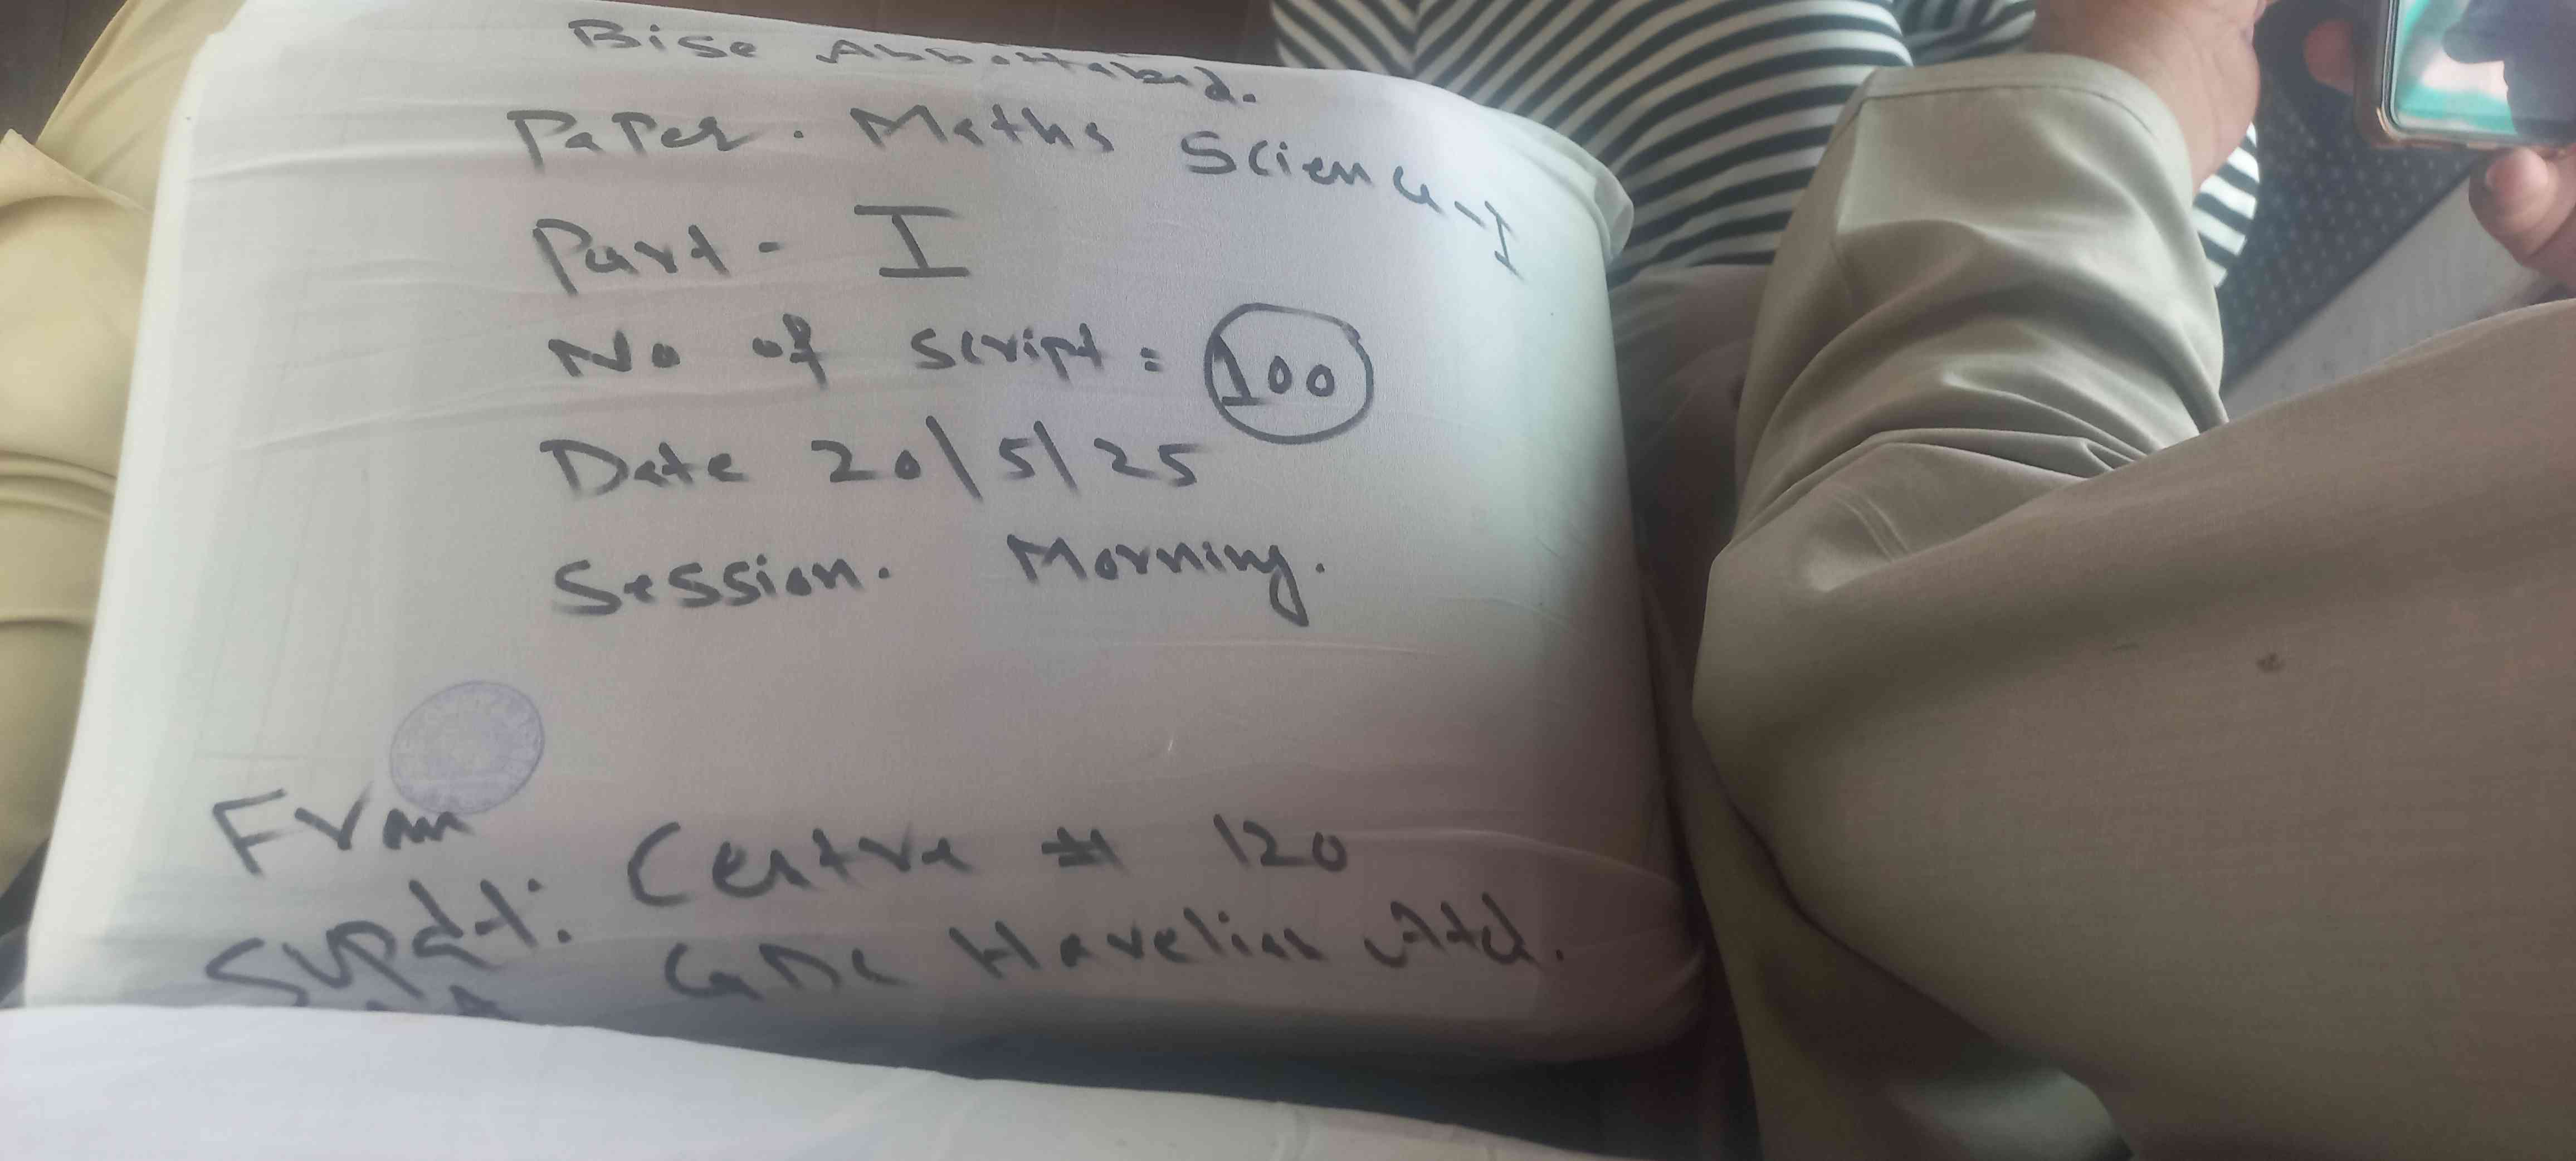 Bise Abbottabad.
Paper. Maths Science-I
Part - I
No of script = 100
Date 20/5/25
Session. Morning.
From
Supdt: Centre # 120
GDC Havelian Atd.